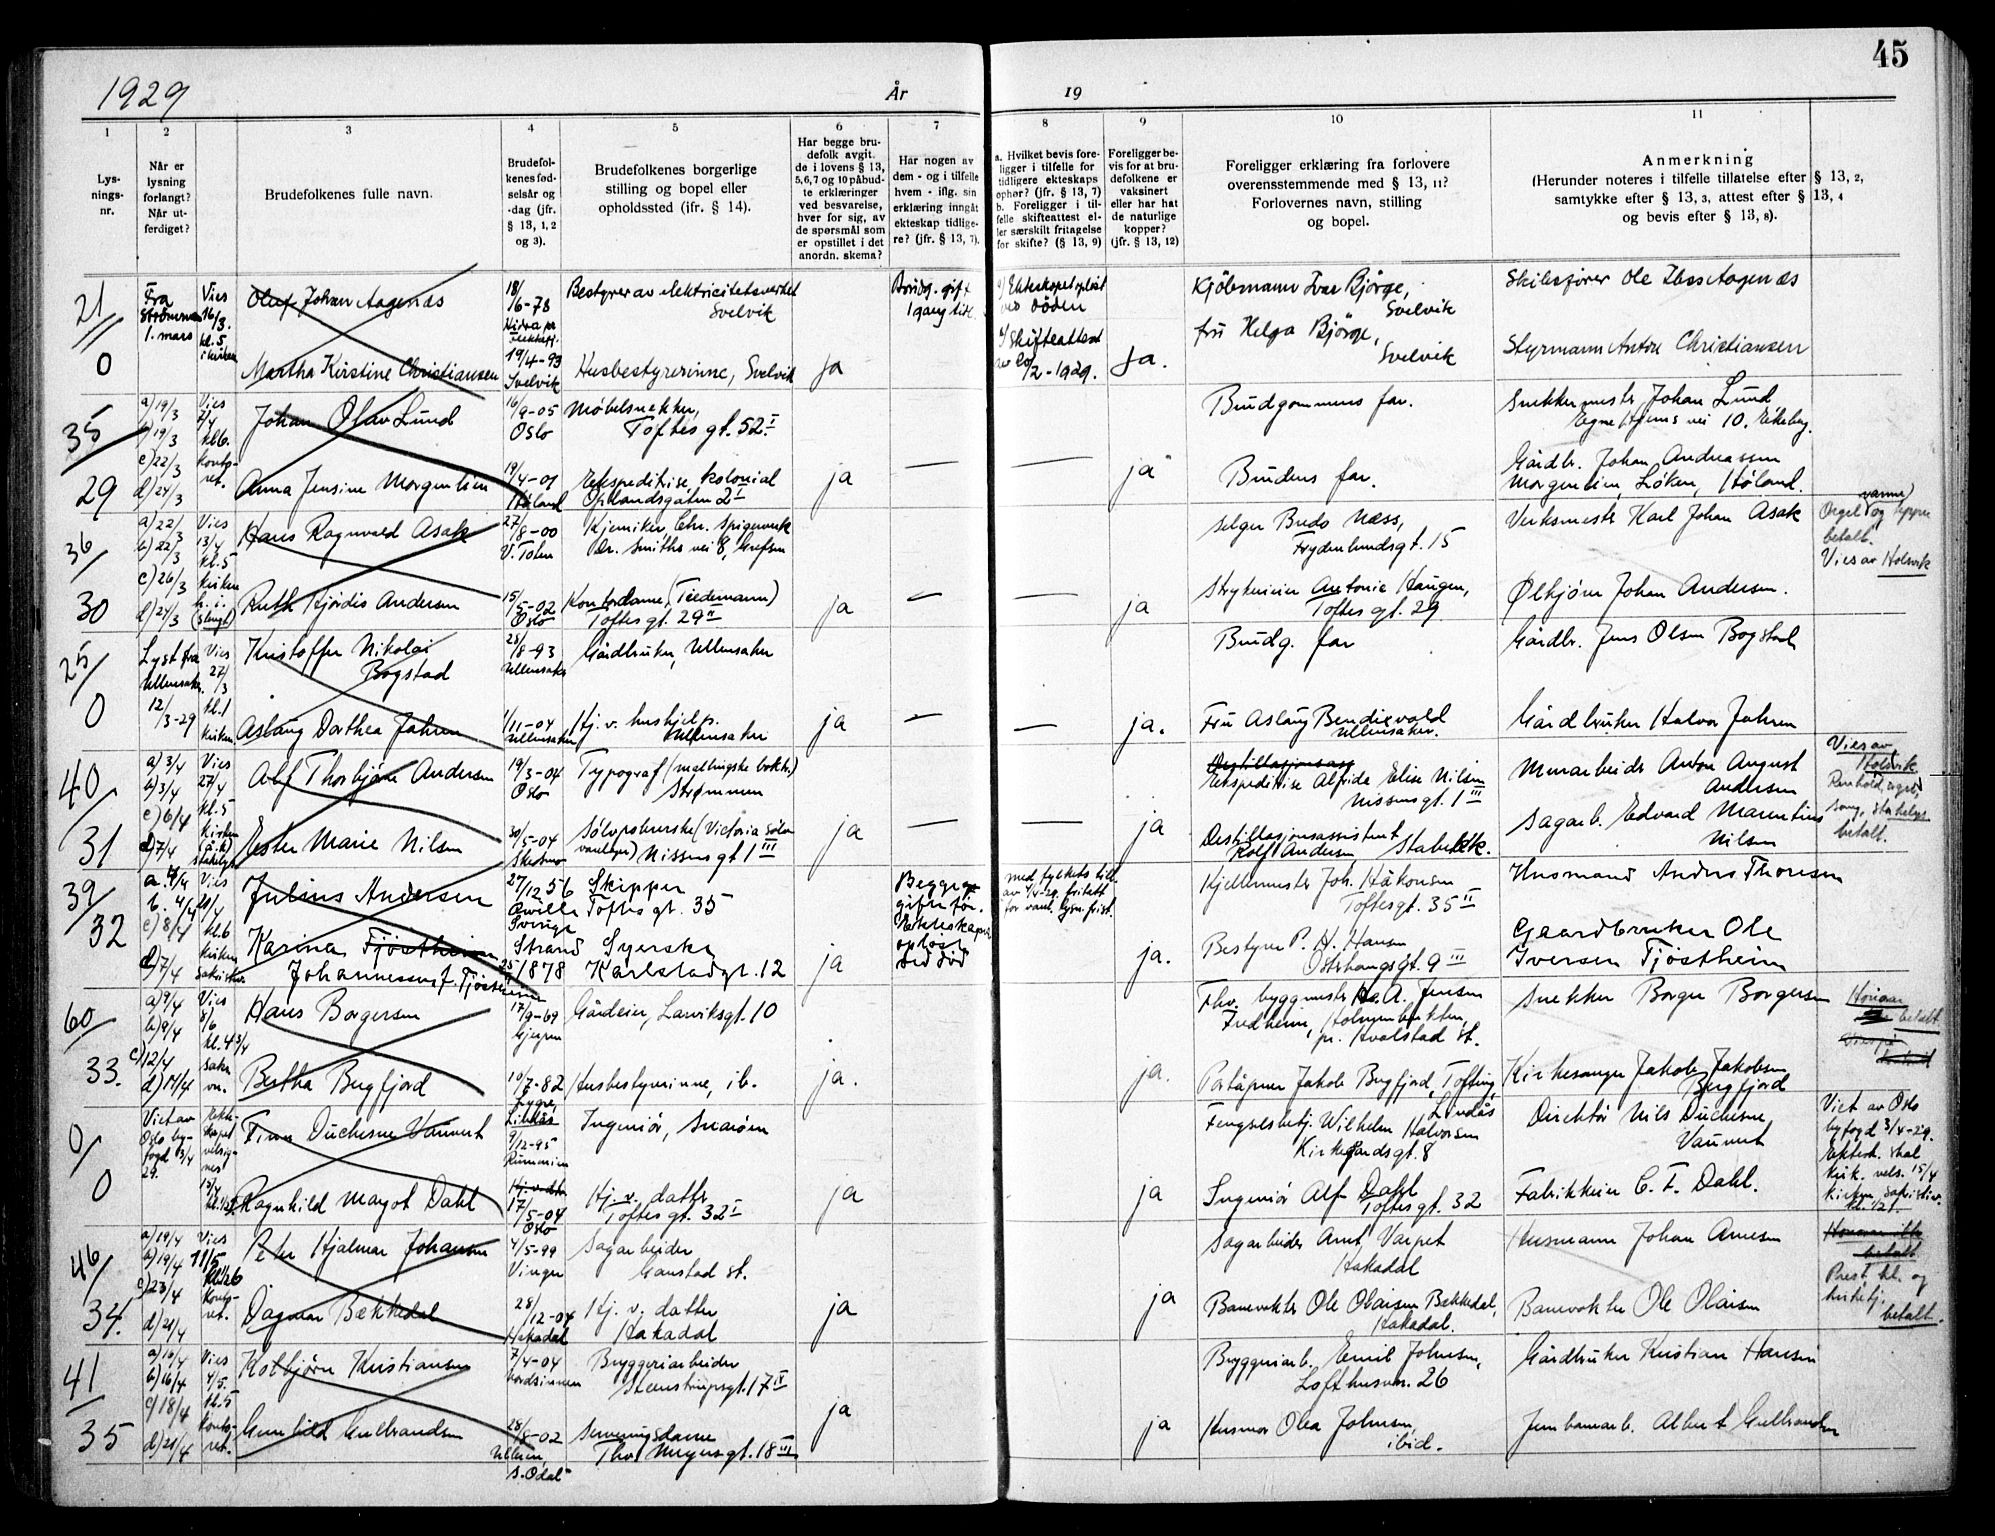 45
1929
År
19
1
2
3
4
5
6
7
8
9
10
11
Lys-
nings-
nr.
Når er
lysning
forlangt?
Når ut-
ferdiget?
Brudefolkenes fulle navn.
Brudefol-
kenes fød-
selsår og
-dag (jfr.
§ 13, 1, 2
og 3).
Brudefolkenes borgerlige
stilling og bopel eller
opholdssted (jfr. § 14).
Har begge bru-
defolk avgit.
de i lovens § 13,
5,6,7 og 10 påbud-
te erklæringer
ved besvarelse,
hver for sig, av
de spørsmål som
er opstillet i det
anordn. skema?
Har nogen av
dem - og i tilfelle
hvem - iflg. sin
erklæring inngåt
ekteskap tidlige-
re? (jfr. § 13, 7).
a. Hvilket bevis fore-
ligger i tilfelle for
tidligere ekteskaps
ophør? (jfr. § 13, 7)
b. Foreligger i til-
felle skifteattest el-
ler særskilt fritagelse
for skifte? (§ 13, 9)
Foreligger be-
vis for at bru-
defolkene er
vaksinert
eller har hat
de naturlige
kopper?
(jfr. § 13, 12)
Foreligger erklæring fra forlovere
overensstemmende med § 13, 11?
Forlovernes navn, stilling
og bopel.
Anmerkning
(Herunder noteres i tilfelle tillatelse efter § 13, 2,
samtykke efter § 13, 3, attest efter § 13, 4
og bevis efter § 13, 8).
21
0
Fra
Strømmen
1. mars
Vies
16/3.
kl. 5
i kirken
Oluf Johan Aagenæs
18/6-78
Hidra pr
Flekkefj.
Bestyrer av elektricitetsverket
Svelvik
Brudg. gift
1 gang tidl.
a) Ekteskapet opløst
ved døden
b) Skifteattest
/2-1929.
Kjøbmann Ivar Bjørge,
Svelvik
fru Helga Bjørge,
Svelvik
Skibsfører Ole Aagenæs
Martha Kirstine Christiansen
19/4-93
Svelvik
Husbestyrerinne, Svelvik
ja
ja.
Styrmann Anton Christiansen
35
29
a) 19/3
b) 19/3
c) 22/3
d) 24/3
Vies
kl 6.
konto-
ret.
Johan Olav Lund
16/9-05
Oslo
Møbelsnekker,
Toftes gt. 52 I
Brudgommens far.
Snekkermester Johan Lund
Egne Hjems vei 10. Ekeberg.
Anna Jensine Morgenlien
19/4-07
Høland
Ekspeditrise, kolonial
Oplandsgaten 2 I
ja
ja
Brudens far.
Gårdbr. Johan Andreassen
Morgenlien, Løken, Høland.
36
30
a) 22/3
b) 22/3
c) 26/3
d) 24/3
Vies
13/4
kl. 5
kirken
Hans Ragnvald Asak
27/8-00
V. Toten
Kjemiker, Chr. Spigerverk
Dr. Smiths vei 8, Grefsen
selger Bredo Næss,
Frydenlundsgt. 15
Verksmester Karl Johan Asak
Orgel og tepper
varme
betalt.
Vies av Holsvik
Ruth Hjørdis Andersen
15/5-02
Oslo
Kontordame, (Tiedemann)
Toftes gt. 29 II
ja
ja
Strykerier Antonie Haugen,
Toftes gt. 29
Ølkjører Johan Andersen.
25
0
Lyst fra
Ullensaker
12/3-29
Vies
27/3
kl. 1
kirken
Kristoffer Nikolai
Bogstad
28/8-93
Ullensaker
Gårdbruker, Ullensaker
Brudg. far
Gårdbr. Jens Olsen Bogstad
Aslaug Dorthea Jahren
1/11-04
Ullensaker
Hj. v. hushjelp.
Ullensaker
ja
ja.
Fru Aslaug Bendixvold
Ullensaker.
Gårdbruker Halvor Jahren
40
31
a) 3/4
b) 3/4
c) 6/4
d) 7/4
Vies
27/4
kl. 5
kirken
Alf Thorbjørn Andersen
19/3-04
Oslo
Typograf (mallingske boktr.)
Strømmen
Ekspeditrise Alfride Elise Nilsen
Nissensgt. 1 III
Murarbeider Anton August
Andersen
Vies av
Holsvik
Renhold, orgel,
sang, stakelys
betalt.
Ester Marie Nilsen
30/5-04
Sølvpolererske (Victoria sølv-
varefapr) Nissensgt 1 III
ja
ja
Destillasjonsassistent
Rolf Andersen, Stabekk.
Sagarb. Edvard Marentius
Nilsen
39
32
a. 4/4
b. 4/4
c) 8/4
d) 7/4
Vies
kl. 6
kirken
sakristiet.
Julius Andersen
27/12 56
Svinge
Skipper
Toftes gt. 35
Begge
gift før.
Ekteskapene
opløst
ved død
med fylkets till.
av 4/4-29 fritatt
for vanl. lysn. frist.
Kjellermester Joh. Håkonsen
Toftesgt. 35 II
Husmand Anders Thoresen
Karina Fjøstheim
Johannessen f. Tjøstheim
Strand
1878
Syerske
Karlstadgt. 12
ja
ja.
Bestyrer P. H. Hansen
Østerhausgt. 9 III
Gaardbruker Ole
Iversen Tjøstheim
60
33.
a) 9/4
b) 9/4
c) 12/4
d) 14/4
Vies
8/6
kl. 4 3/4
Hans Borgersen
17/9-69
Gjerpen
Gårdeier, Larviksgt. 10
Fhv. byggmester A. Jensen
Fredheim, Holmenbukten,
pr. Hvalstad st.
Snekker Borger Borgersen
Honorar
betalt.
Bertha Bugfjord
10/7-82
Lindås
Husbestyrerinne, ib.
ja.
ja.
Portåpner Jakob Bugfjord, Tofting,
Lindås
Kirkesanger Jakob Jakobsen
Bugfjord
0
0
Viet av
Oslo by-
fogd 3/4
29.
Ekte-
skapet
velsig-
nes
15/4
Finn Duchesne Vauvert
9/12-95
Ingeniør, Snarøen
Fengselsbetj. Wilhelm Halvorsen
Kirkegårdsgt. 8
Direktør Nils Duchesne
Vauvert
Viet av Oslo
byfogd 3/4-29.
Ektesk. skal
kirk. vels. 15/4
kirken, sakristiet
kl. 1/2 1.
Ragnhild Margot Dahl
17/5-04
Oslo
Hj. v. datter
Toftes gt. 32 I
ja
ja
Ingeniør Alf Dahl
Toftes gt. 32
Fabrikkeier C. F. Dahl.
46
34.
a) 19/4
b) 19/4
c) 23/4
d) 21/4
Vies
11/5
kl. 1/2 6
konto-
ret.
Peder Hjalmar Johansen
4/5-99
Vinger
Sagarbeider
Ganstad st.
Sagarbeider Arnt Varpet
Hakadal
Husmann Johan Arnesen
Honorar ikke
betalt
Prest, kl. og
kirketj.
betalt.
Dagmar Bækkedal
28/12-04
Hakadal
Hj. v. datter
Hakadal
ja
ja
Banevokter Ole Olaisen Bækkedal,
Hakadal.
Banevokter Ole Olaisen
41
35
a) 16/4
b) 16/4
c) 18/4
d) 21/4
Vies
4/5.
kl. 5
konto-
ret.
Kolbjørn Kristiansen
7/4-04
Nordsinnen
Bryggeriarbeider
Steenstrupsgt. 17 IV
Bryggeriarb. Emil Johnsen,
Lofthusvn. 26
Gårdbruker Kristian Hansen
Gunhild Gulbrandsen
28/8-02
Ullern,
S. Odal
Serveringsdame
Thv. Meyersgt. 18 III
ja
ja
Husmor Olea Johnsen
ibid.
Jernbanearb. Albert Gulbrandsen